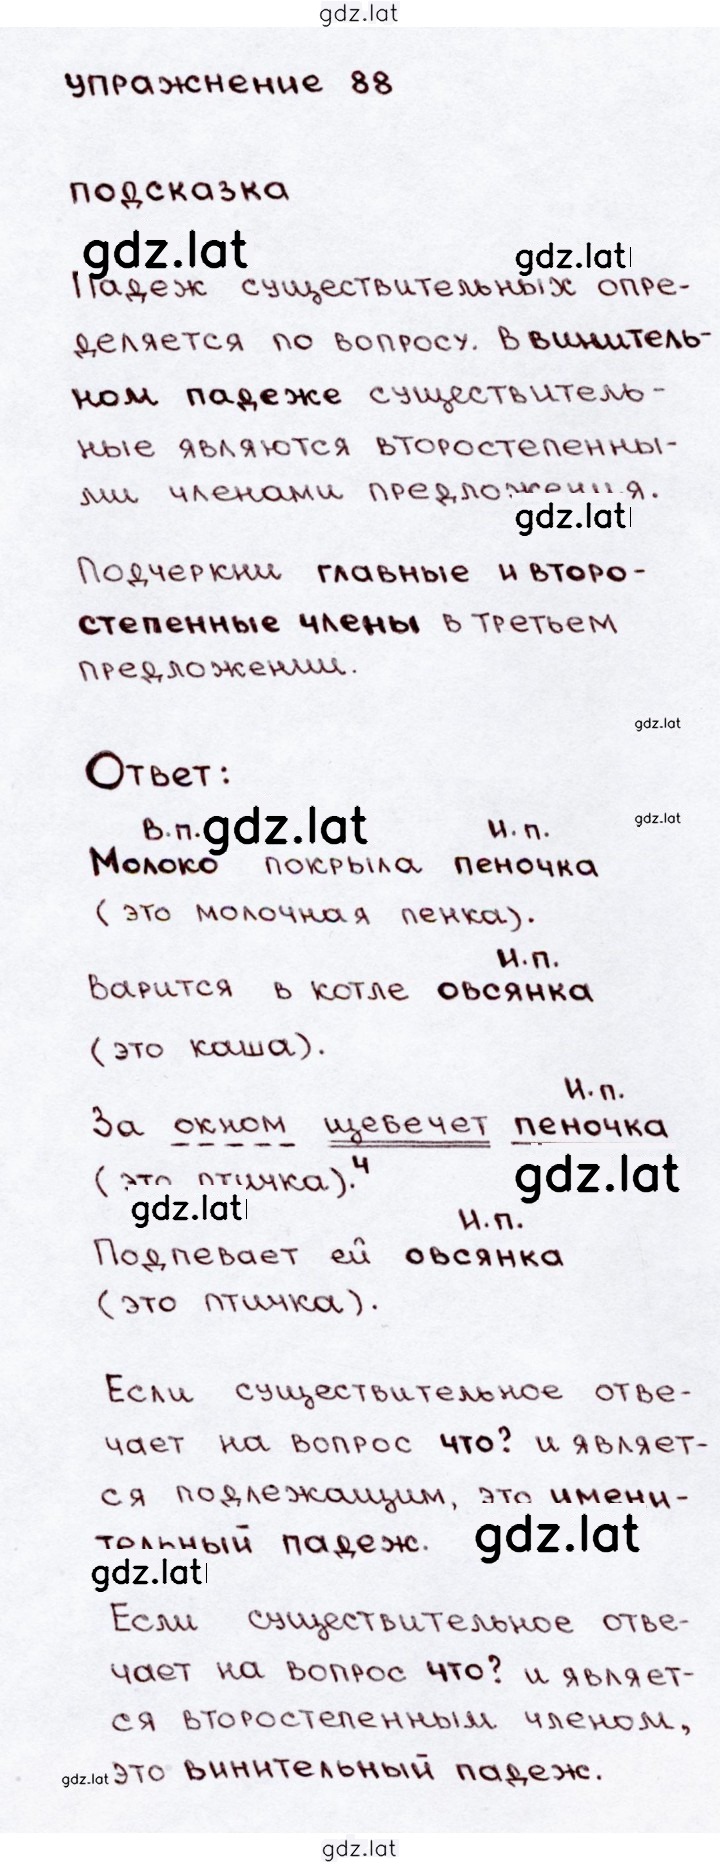 gdz.lat
упражнение 88
подсказка
gdz.lat gdz.lat
Падеж существительных опре-
деляется по вопросу. В винитель-
ном падеже существитель-
ные являются второстепенны-
ми членами предложения.
gdz.lat
Подчеркни главные и второ-
степенные члены в третьем
предложении.
gdz.lat
Ответ:
В.п. gdz.lat И.п. gdz.lat
Молоко покрыла пеночка
(это молочная пенка).
И.п.
Варится в котле овсянка
(это каша).
И.п.
За окном щебечет пеночка
(это птичка).4 gdz.lat
gdz.lat
И.п.
Подпевает ей овсянка
(это птичка).
Если существительное отве-
чает на вопрос что? и являет-
ся подлежащим, это имени-
тельный падеж. gdz.lat
gdz.lat
Если существительное отве-
чает на вопрос что? и являет-
ся второстепенным членом,
gdz.lat это винительный падеж.
gdz.lat